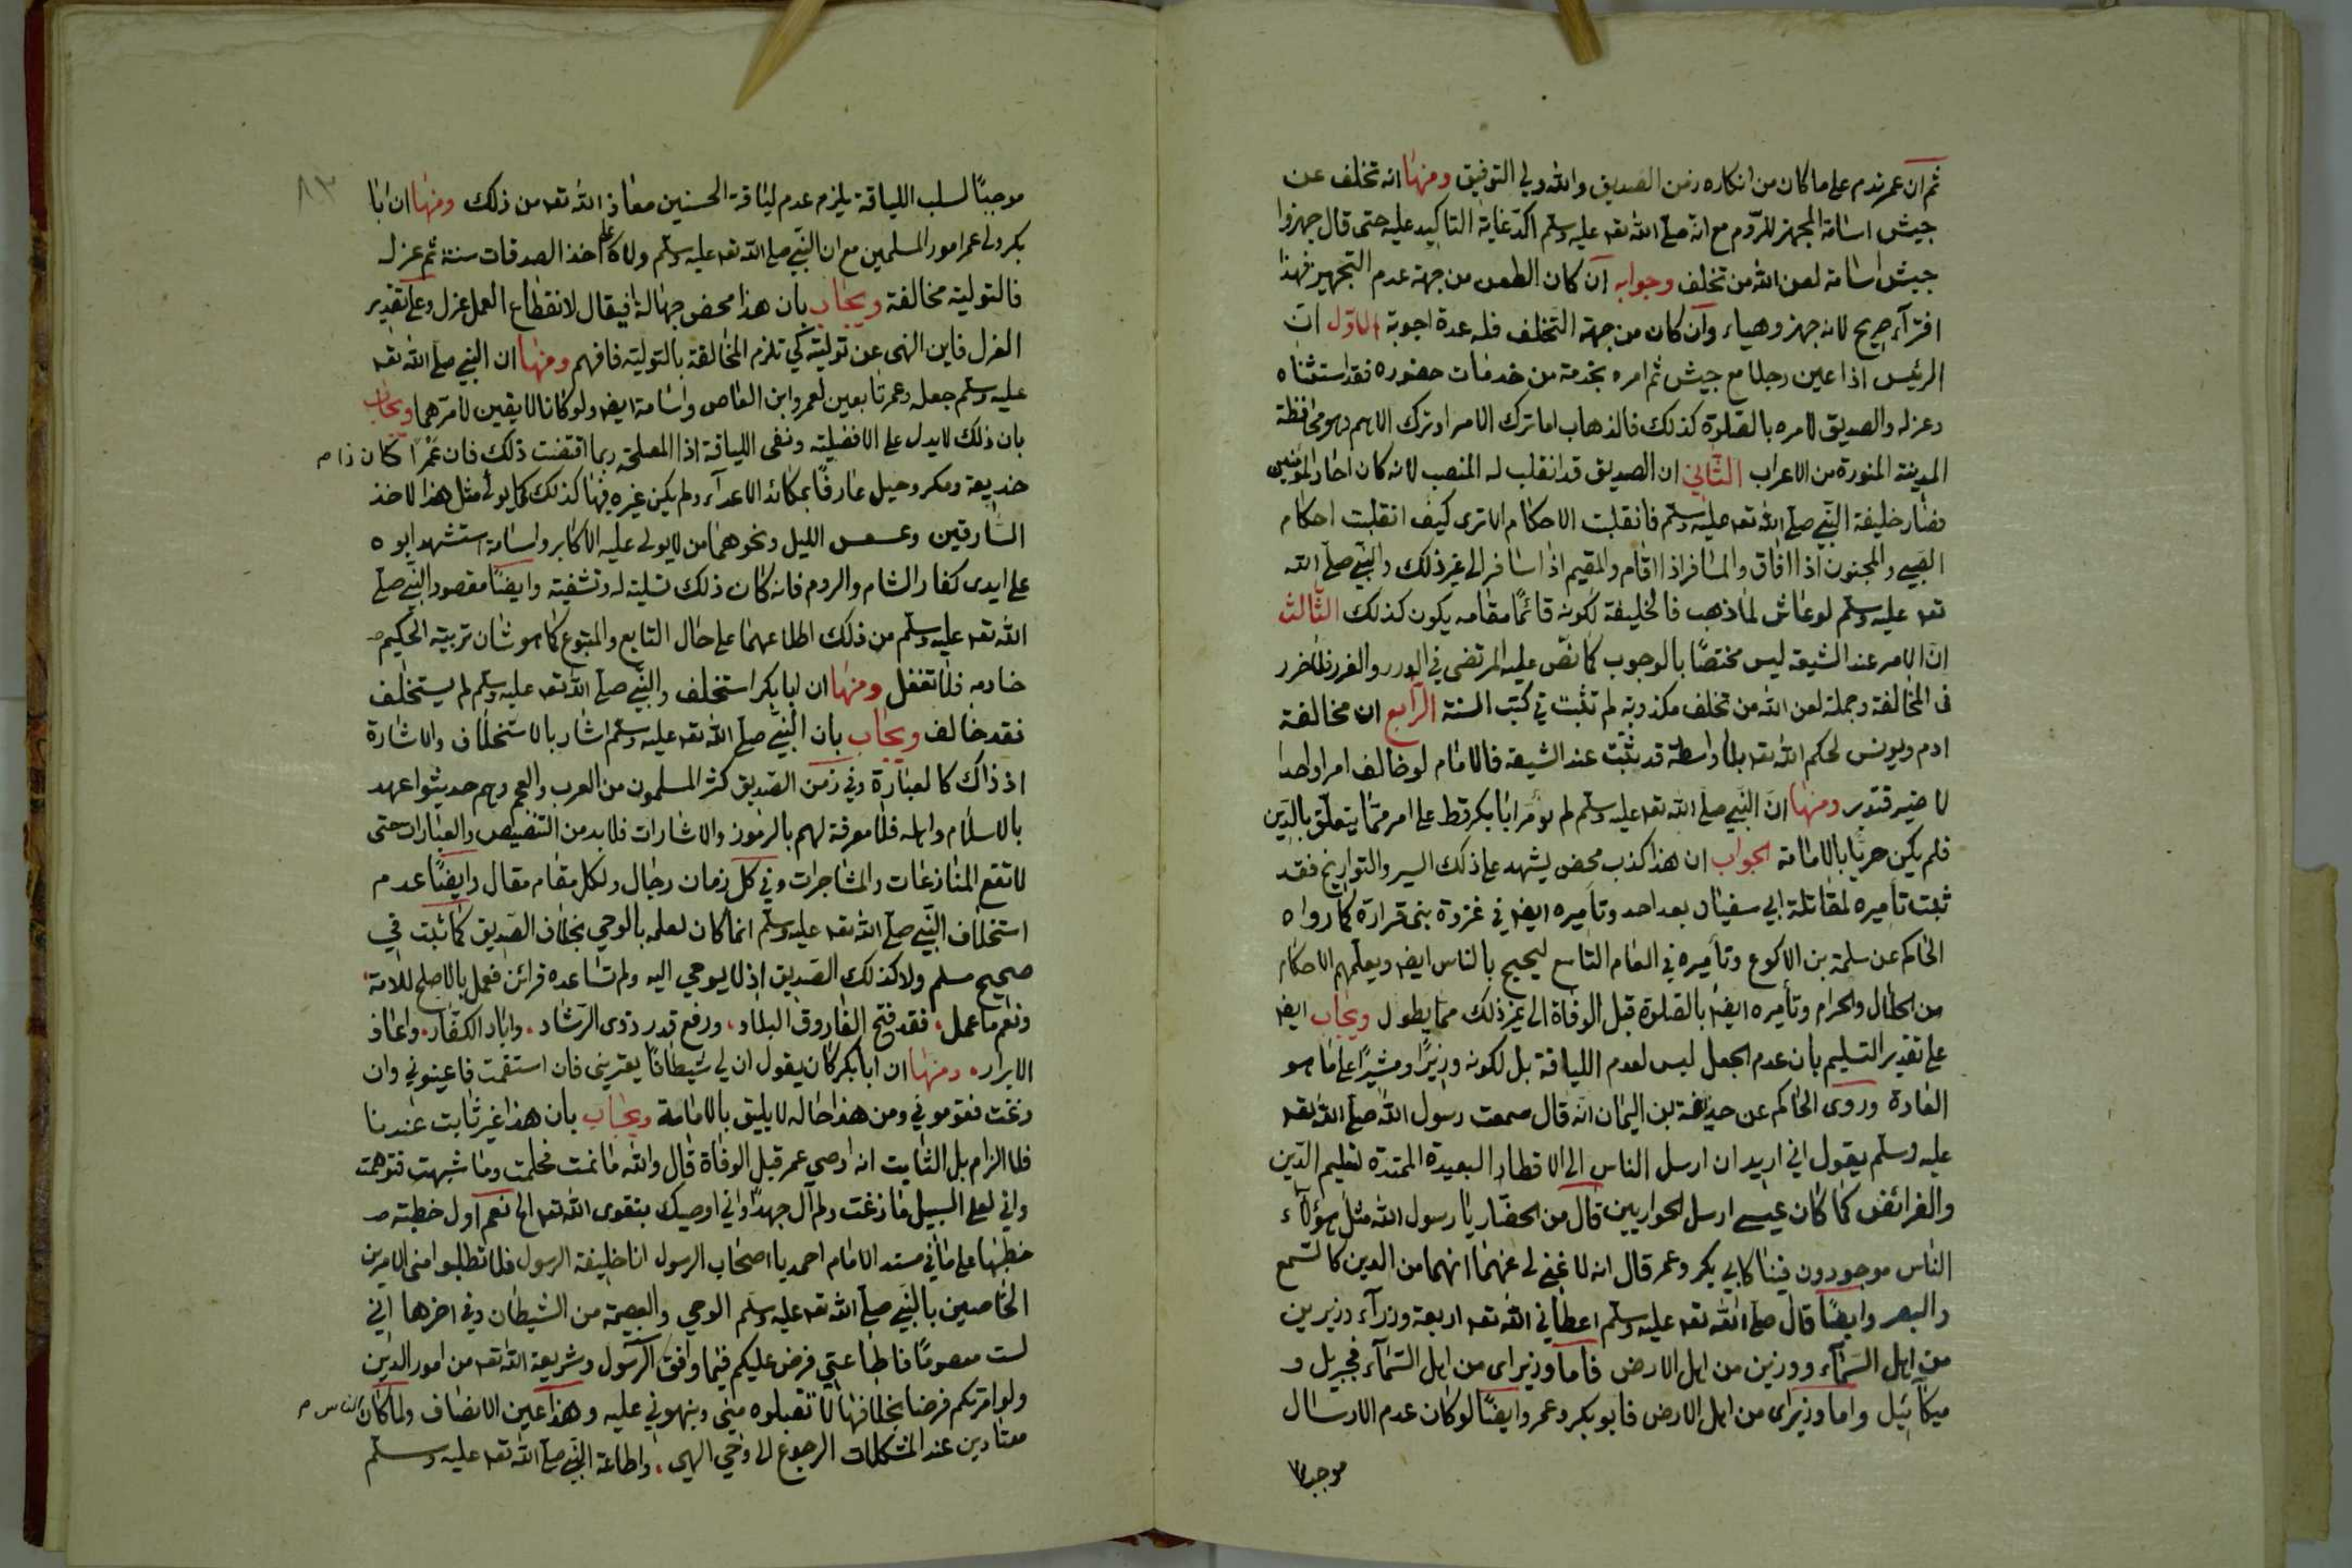 ثم ان عمر ندم على ما كان من انكاره زمن الصديق والله ولي التوفيق ومنها انه تخلف عن
جيش اسامة المجهز للروم مع انه صلى الله تعه عليه وسلم اكد غاية التاكيد عليه حتى قال جهزوا
جيش اسامة لعن الله من تخلف وجوابه ان كان الطعن من جهة عدم التجهيز فهذا
افترآء صريح لانه جهز وهياء وان كان من جهة التخلف فله عدة اجوبة الاول ان
الرئيس اذا عين رجلا مع جيش ثم امره بخدمة من خدمات حضوره فقد استثناه
وعزله والصديق لامره بالصلوة كذلك فالذهاب اما ترك الامر او ترك الاهم وهو محافظة
المدينة المنورة من الاعراب الثاني ان الصديق قد انقلب له المنصب لانه كان احاد المؤمنين
فصار خليفة النبي صلى الله تعه عليه وسلم فانقلبت الاحكام الا ترى كيف انقلبت احكام
الصبي والمجنون اذا افاق والمسافر اذا اقام والمقيم اذا سافر الى غير ذلك والنبي صلى الله
تعه عليه وسلم لو عاش لما ذهب فالخليفة لكونه قائما مقامه يكون كذلك الثالث
ان الامر عند الشيعة ليس مختصا بالوجوب كما نص عليه المرتضى في الدرر والغرر فلا ضرر
فى المخالفة وجملة لعن الله من تخلف مكذوبة لم تثبت في كتب السنة الرابع ان مخالفة
ادم ويونس لحكم الله تعه بلا واسطة قد ثبتت عند الشيعة فالامام لو خالف امرا واحدا
لا ضير فتدبر ومنها ان النبي صلى الله تعه عليه وسلم لم يؤمر ابا بكر قط على امر مما يتعلق بالدين
فلم يكن حريا بالامامة الجواب ان هذا كذب محض يشهد على ذلك السير والتواريخ فقد
ثبت تاميره لمقاتلة ابي سفيان بعد احد وتاميره ايضه في غزوة بنى قرارة كما رواه
الحاكم عن سلمة بن الاكوع وتاميره في العام التاسع ليحج بالناس ايضه ويعلمهم الاحكام
من الحلال والحرام وتأميره ايضه بالصلوة قبل الوفاة الى غير ذلك مما يطول ويجاب ايضه
على تقدير التسليم بان عدم الجعل ليس لعدم اللياقة بل لكونه وزيرا ومشيرا على ما هو
العادة وروى الحاكم عن حذيفة بن اليمان انه قال سمعت رسول الله صلى الله تعه
عليه وسلم يقول اني اريد ان ارسل الناس الى الاقطار البعيدة الممتدة لتعليم الدين
والفرائض كما كان عيسى ارسل الحواريين قال من الحضار يا رسول الله مثل هؤلاء
الناس موجودون فينا كابي بكر وعمر قال انه لا غنى لى عنهما انهما من الدين كالسمع
والبصر وايضا قال صلى الله تعه عليه وسلم اعطاني الله تعه اربعة وزرآء وزيرين
من اهل السمآء ووزين من اهل الارض فاما وزيراى من اهل السمآء فجبريل و
ميكآئيل واما وزيراى من اهل الارض فابو بكر وعمر وايضا لو كان عدم الارسال
موجبا
٨٣
موجبا لسلب اللياقة يلزم عدم لياقة الحسنين معاذ الله تعه من ذلك ومنها ان ابا
بكر ولى عمر امور المسلمين مع ان النبي صلى الله تعه عليه وسلم ولاه على اخذ الصدقات سنة ثم عزله
فالتولية مخالفة ويجاب بان هذا محض جهالة افيقال لانقطاع العمل عزل وعلى تقدير
العزل فاين النهى عن توليته كي تلزم المخالفة بالتولية فافهم ومنها ان النبي صلى الله تعه
عليه وسلم جعله وعمر تابعين لعمرو ابن العاص واسامة ايضه ولو كانا لايقين لامرهما ويجاب
بان ذلك لا يدل على الافضلية ونفى اللياقة اذا المصلحة ربما اقتضت ذلك فان عمرا كان ذا م
خديعة ومكر وحيل عارفا بمكائد الاعدآء ولم يكن غيره فيها كذلك كما يولى مثل هذا لاخذ
السارقين وعسس الليل ونحوهما من لا يولى عليه الاكابر واسامة استشهد ابوه
على ايدى كفار الشام والروم فانه كان ذلك تسلية له وتشفية وايضا مقصود النبي صلى
الله تعه عليه وسلم من ذلك اطلاعهما على حال التابع والمتبوع كما هو شان تربية الحكيم
خادمه فلا تغفل ومنها ان ابا بكر استخلف والنبي صلى الله تعه عليه وسلم لم يستخلف
فقد خالف ويجاب بان النبي صلى الله تعه عليه وسلم اشار بالاستخلاف والاشارة
اذ ذاك كالعبارة وفي زمن الصديق كثر المسلمون من العرب والعجم وهم حديثوا عهد
بالاسلام واهله فلا معرفة لهم بالرموز والاشارات فلا بد من التنصيص والعبارات حتى
لا تقع المنازعات والمشاجرات وفي كل زمان رجال ولكل مقام مقال وايضا عدم
استخلاف النبي صلى الله تعه عليه وسلم انما كان لعلمه بالوحي بخلاف الصديق كما ثبت في
صحيح مسلم ولا كذلك الصديق اذ لا يوحي اليه ولم تساعده قرائن فعمل بالاصلح للامة
ونعم ما عمل. فقد فتح الفاروق البلاد. ورفع قدر ذوى الرشاد. واباد الكفار. واعان
الابرار. ومنها ان ابا بكر كان يقول ان لي شيطانا يعتريني فان استقمت فاعينوني وان
زغت فقوموني ومن هذا حاله لا يليق بالامامة ويجاب بان هذا غير ثابت عندنا
فلا الزام بل الثابت انه اوصى عمر قبل الوفاة قال والله ما نمت فحلمت وما شبهت فتوهمت
واني لعلى السبيل ما زغت ولم آل جهدا واني اوصيك بتقوى الله تعه الخ نعم اول خطبته
خطبها على ما في مسند الامام احمد يا اصحاب الرسول انا خليفة الرسول فلا تطلبوا منى الامرين
الخاصين بالنبي صلى الله تعه عليه وسلم الوحي والعصمة من الشيطان وفي اخرها اني
لست معصوما فاطاعتي فرض عليكم فيما وافق الرسول وشريعة الله تعه من امور الدين
ولو امرتكم فرضا بخلافها لا تقبلوه مني ونبهوني عليه وهذا عين الانصاف ولما كان الناس م
معتادين عند المشكلات الرجوع الى وحي الهي. واطاعة النبي صلى الله تعه عليه وسلم